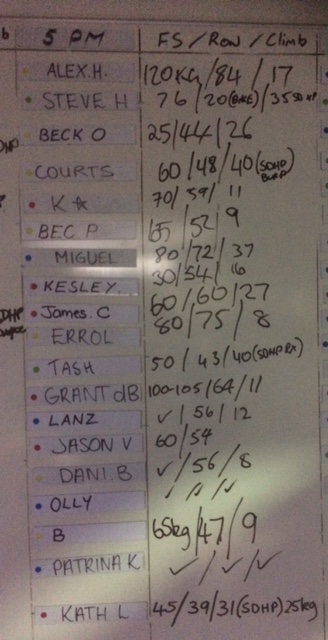 5 PM FS / Row / Climb
ALEX.H. 120Kg / 84 / 17
STEVE H 76 / 20 (BIKE) / 35 SDHP
BECK O 25/44/26
COURTS 60 / 48 / 40 (SDHP Burp)
K ☆ 70/ 59/ 11
BEC P 65/ 52/ 9
MIGUEL 80/72/ 37
KESLEY 30/54/ 16
James. C 60/60/27
ERROL 80/ 75/ 8
TASH 50 / 43/40 (SDHP RX)
GRANT dB 100-105/64/11
LANZ ✓ / 56 / 12
JASON V 60/54
DANI.B ✓/56/8
OLLY ✓ / ✓ / ✓
B 65kg/47/9
PATRINA K ✓ / ✓ / ✓
KATH L 45/39/31 (SDHP) 25kg